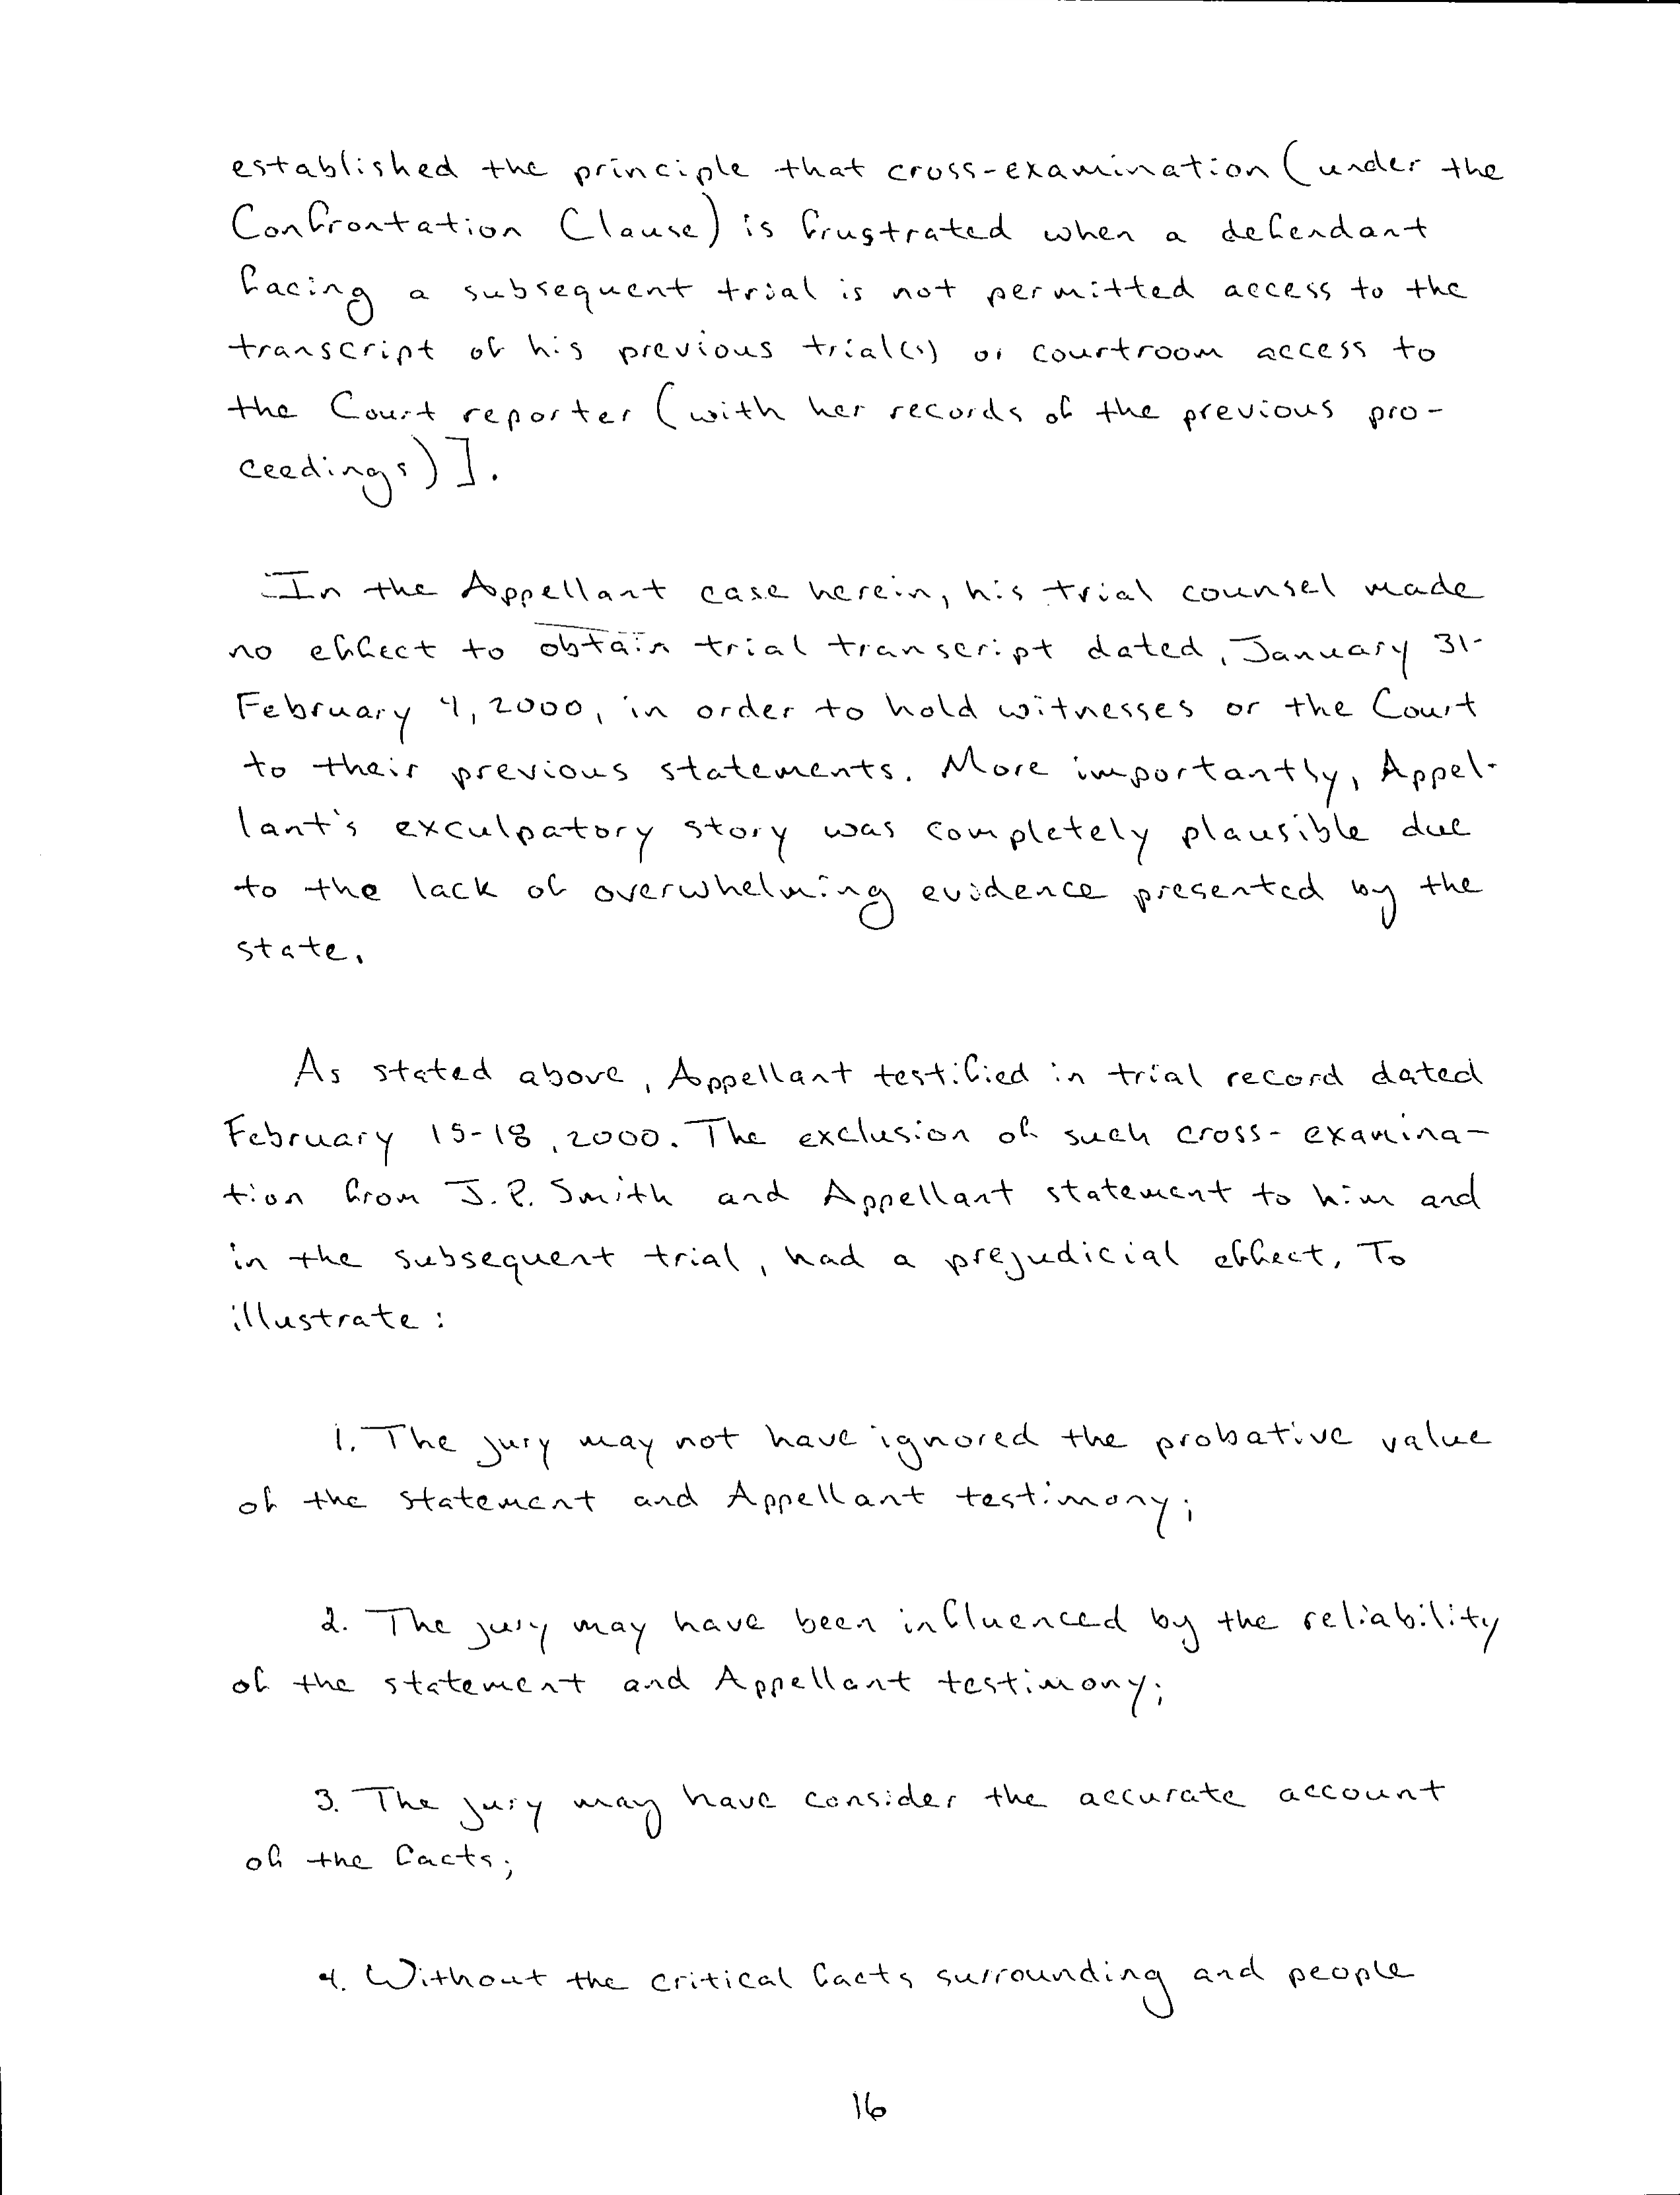 established the principle that cross-examination (under the
Confrontation Clause) is frustrated when a defendant
facing a subsequent trial is not permitted access to the
transcript of his previous trial(s) or courtroom access to
the Court reporter (with her records of the previous pro-
ceedings)].
In the Appellant case herein, his trial counsel made
no effect to obtain trial transcript dated, January 31-
February 4, 2000, in order to hold witnesses or the Court
to their previous statements. More importantly, Appel-
lant's exculpatory story was completely plausible due
to the lack of overwhelming evidence presented by the
state.
As stated above, Appellant testified in trial record dated
February 15-18, 2000. The exclusion of such cross-examina-
tion from J.P. Smith and Appellant statement to him and
in the subsequent trial, had a prejudicial effect. To
illustrate:
1. The jury may not have ignored the probative value
of the statement and Appellant testimony;
2. The jury may have been influenced by the reliability
of the statement and Appellant testimony;
3. The jury may have consider the accurate account
of the facts;
4. Without the critical facts surrounding and people
16